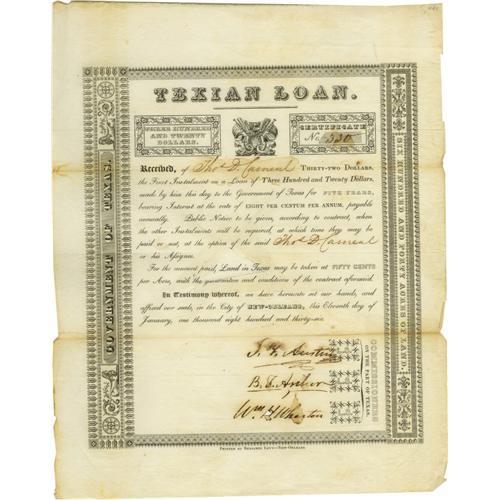 TEXIAN LOAN.
THREE HUNDRED
AND TWENTY
DOLLARS.
CERTIFICATE
No. 330
Received, of Thos D. Carneal THIRTY-TWO DOLLARS,
the First Instalment on a Loan of Three Hundred and Twenty Dollars,
made by him this day to the Government of Texas for FIVE YEARS,
bearing Interest at the rate of EIGHT PER CENTUM PER ANNUM, payable
annually. Public Notice to be given, according to contract, when
the other Instalments will be required, at which time they may be
paid or not, at the option of the said Thos D. Carneal
or his Assigns.
For the amount paid, Land in Texas may be taken at FIFTY CENTS
per Acre, with the guarantees and conditions of the contract aforesaid.
In Testimony whereof, we have hereunto set our hands, and
affixed our seals, in the City of NEW-ORLEANS, this Eleventh day of
January, one thousand eight hundred and thirty-six.
S. F. Austin
B. T. Archer
Wm H Wharton
COMMISSIONERS
ON THE PART OF TEXAS.
GOVERNMENT OF TEXAS.
SIX HUNDRED AND FORTY ACRES OF LAND.
PRINTED BY BENJAMIN LEVY—NEW-ORLEANS.